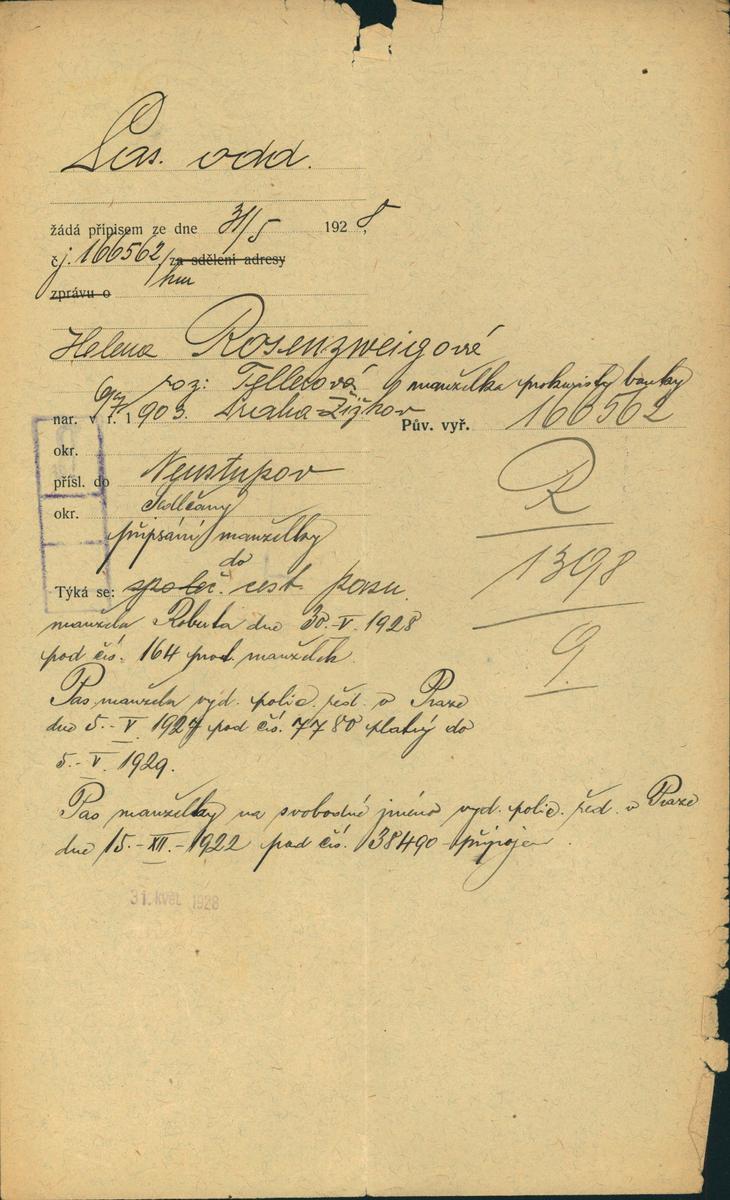 Pas. odd.
žádá připisem ze dne 31/5 1928,
čj. 166562/ za sdělení adresy
hm
zprávu o
Helena Rosenzweigové
roz: Tellerová manželka prokuristy banky
nar. v r. 1903. Praha-Žižkov
Pův. vyř. 166562
okr.
přísl. do Neustupov
okr. Sedlčany
připsání manželky
do
Týká se: společ. cest. pasu.
manžela Roberta dne 30.-V. 1928
pod čís. 164 prod. manželek.
Pas manžela vyd. polic. řed. v Praze
dne 5.-V. 1927 pod čís. 7780 platný do
5.-V. 1929.
Pas manželky na svobodné jméno vyd. polic. řed. v Praze
dne 15.-XII.-1922 pod čís. 38490 připojen.
R
1398
9.
31. květ. 1928